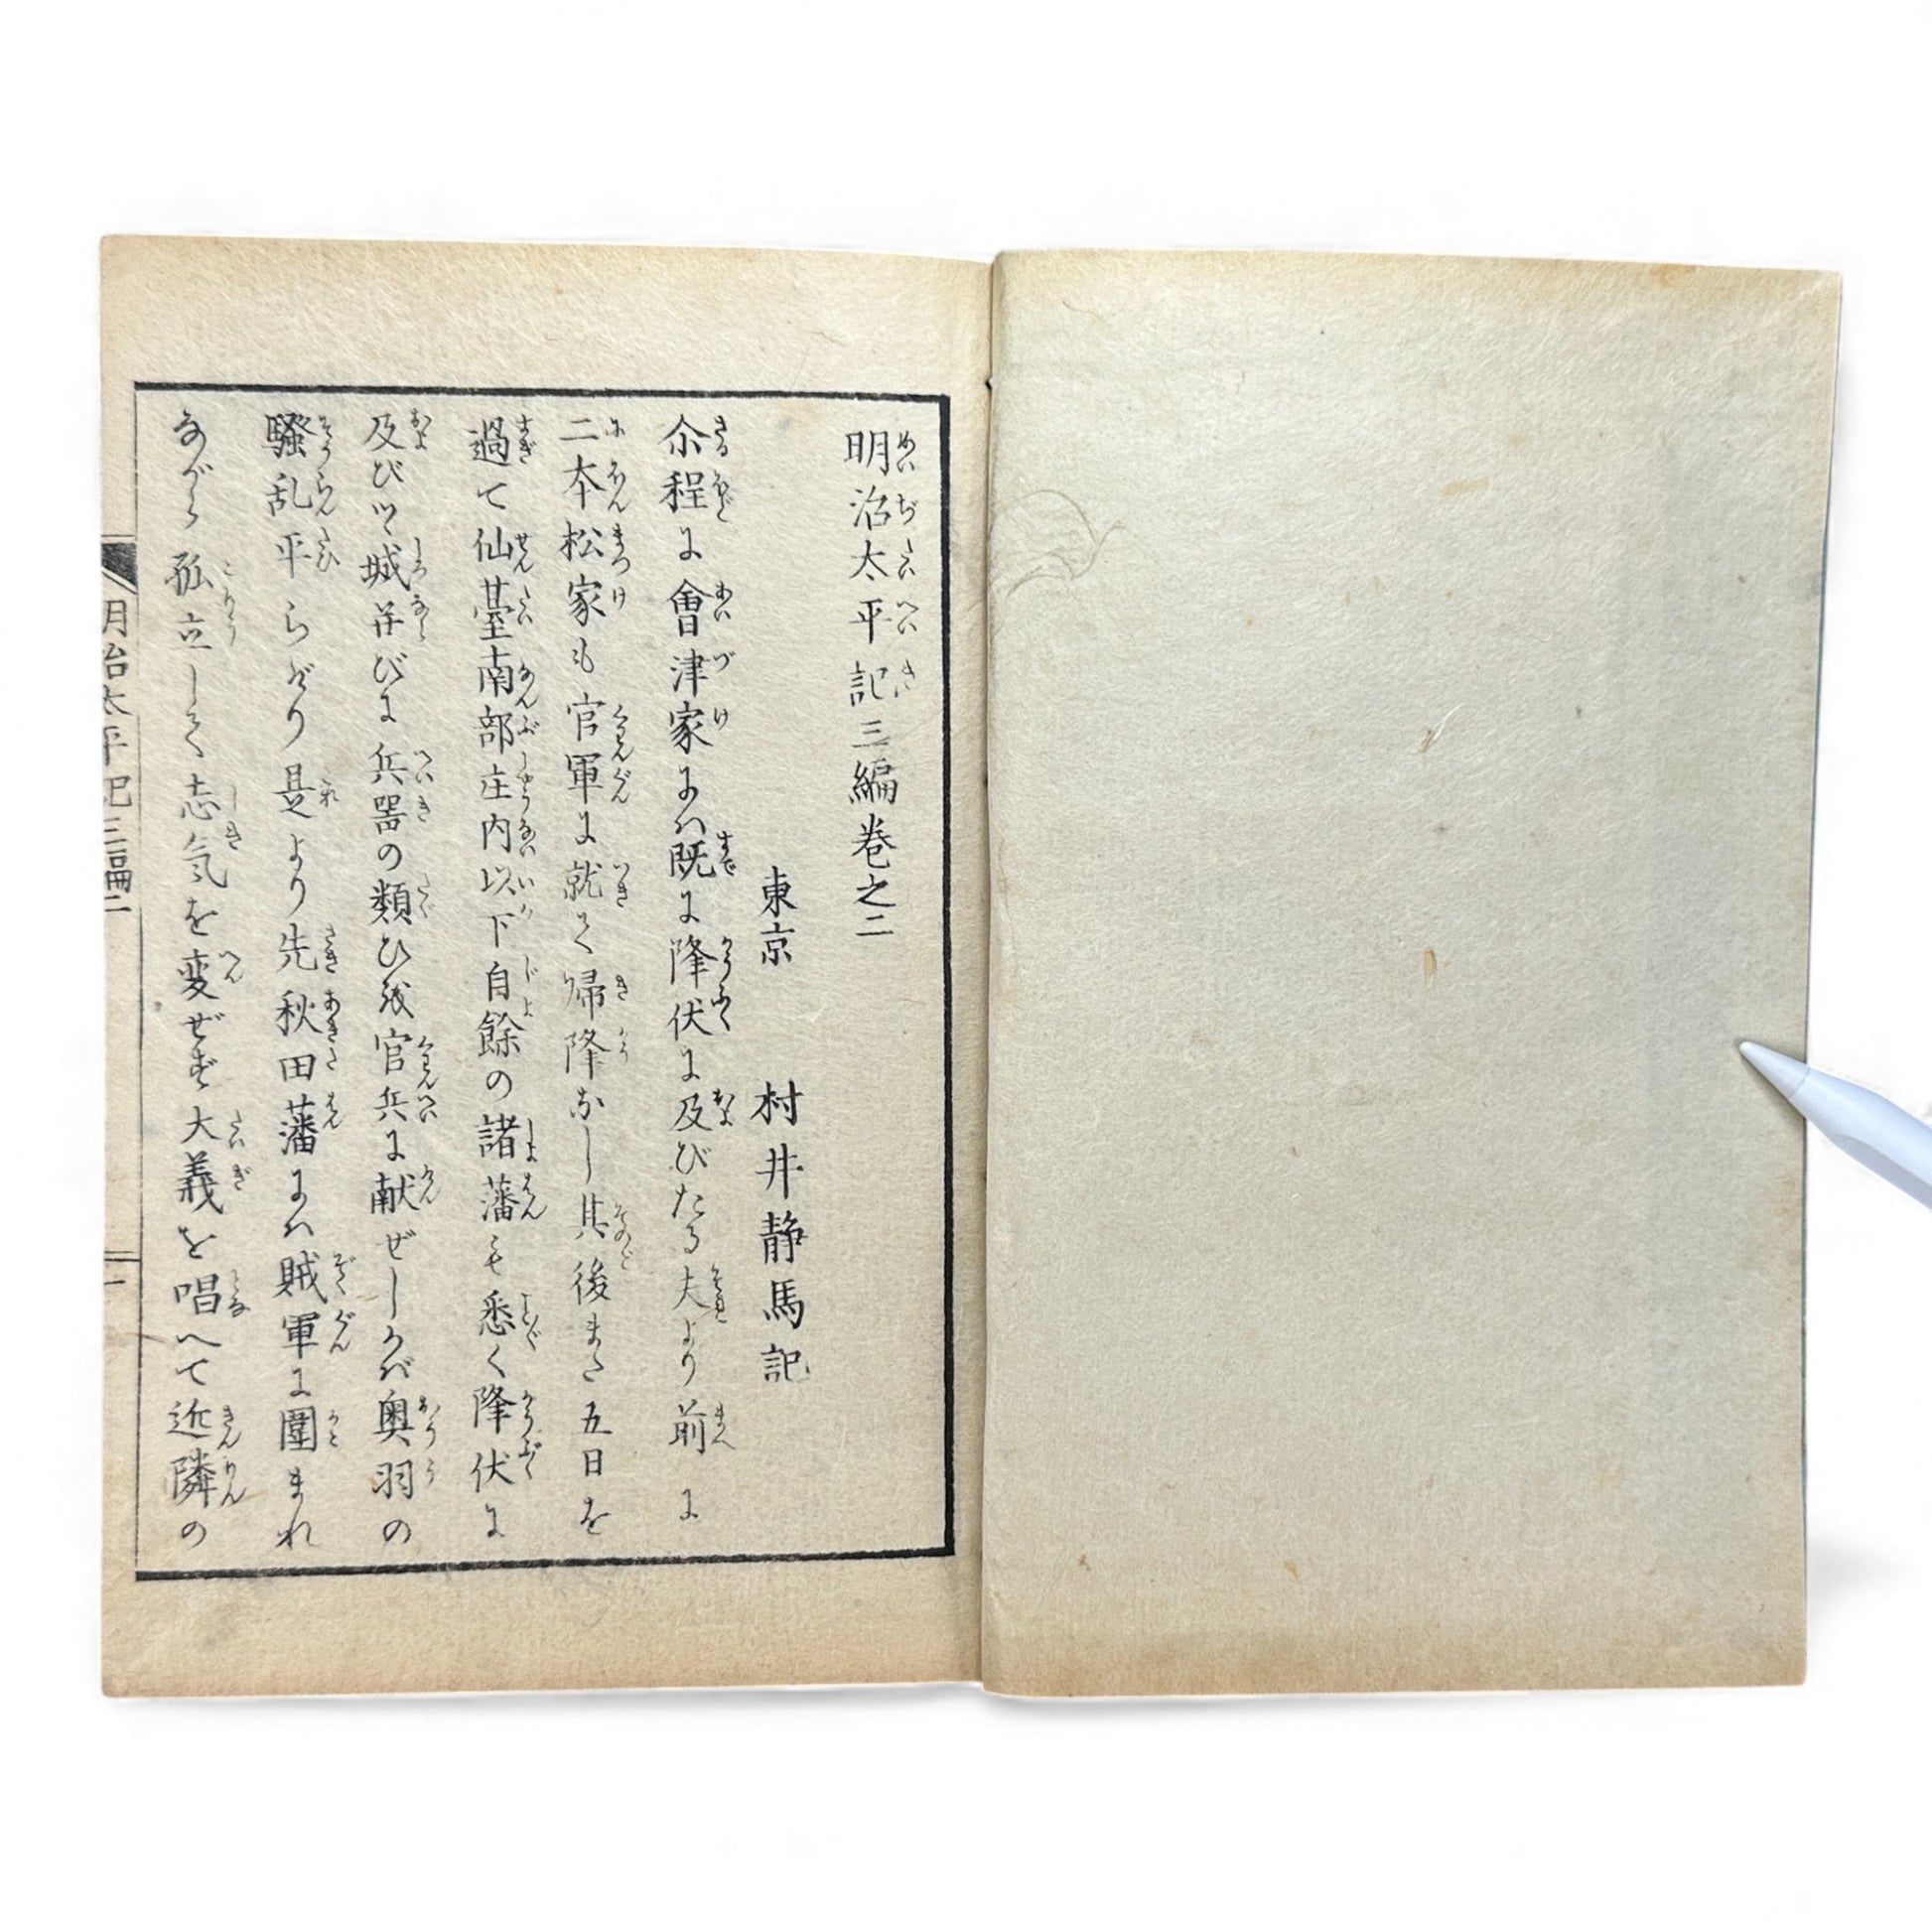 明治太平記三編巻之二
東京 村井静馬記
尒程に會津家にハ既に降伏に及びたる夫より前に
二本松家も官軍に就て帰降なし其後また五日を
過て仙臺南部庄内以下自餘の諸藩も悉く降伏に
及びツヽ城荘びに兵器の類ひ残官兵に献ぜしかバ奥羽の
騒乱平らげり是より先秋田藩にハ賊軍に圍まれ
ながら孤立して志気を変ぜず大義を唱へて近隣の
明治太平記三編二
一